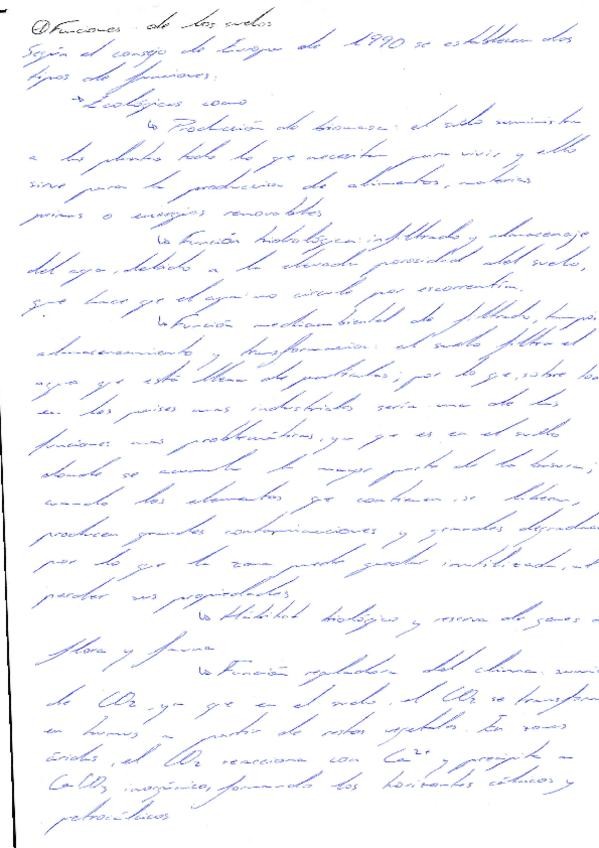 ① Funciones de los suelos
Según el consejo de Europa de 1990 se establecen dos
tipos de funciones:
→ Ecológicas como
↳ Producción de biomasa: el suelo suministra
a las plantas todo lo que necesitan para vivir y ello
sirve para la producción de alimentos, materias
primas o energías renovables
↳ Función hidrológica: infiltrado y almacenaje
del agua, debido a la elevada porosidad del suelo,
que hace que el agua no circule por escorrentía.
↳ Función medioambiental de filtrado,
almacenamiento y transformación: el suelo filtra el
agua que está llena de partículas; por lo que, sobre
en los países más industriales sería una de las
funciones más problemáticas, ya que es en el suelo
donde se acumula la mayor parte de la basura;
cuando los elementos que contienen se liberan,
producen grandes contaminaciones y grandes
por lo que la zona puede quedar inutilizada, al
perder sus propiedades
↳ Hábitat biológico y reserva de genes
flora y fauna
↳ Función reguladora del clima:
de CO₂, ya que en el suelo, el CO₂ se transforma
en humus a partir de restos vegetales. En zonas
áridas, el CO₂ reacciona con Ca²⁺ y precipita a
CaCO₃ inorgánico, formando los horizontes cálcicos y
petrocálcicos